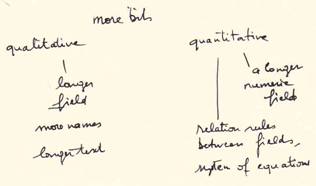 more bits
qualitative
longer
field
more names
longer text
quantitative
a longer
numeric
field
relation rules
between fields,
system of equations